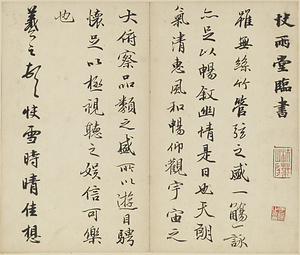 快雨堂臨書
雖無絲竹管弦之盛一觴一詠
亦足以暢敘幽情是日也天朗
氣清惠風和暢仰觀宇宙之
大俯察品類之盛所以遊目騁
懷足以極視聽之娛信可樂
也
羲之頓首快雪時晴佳想